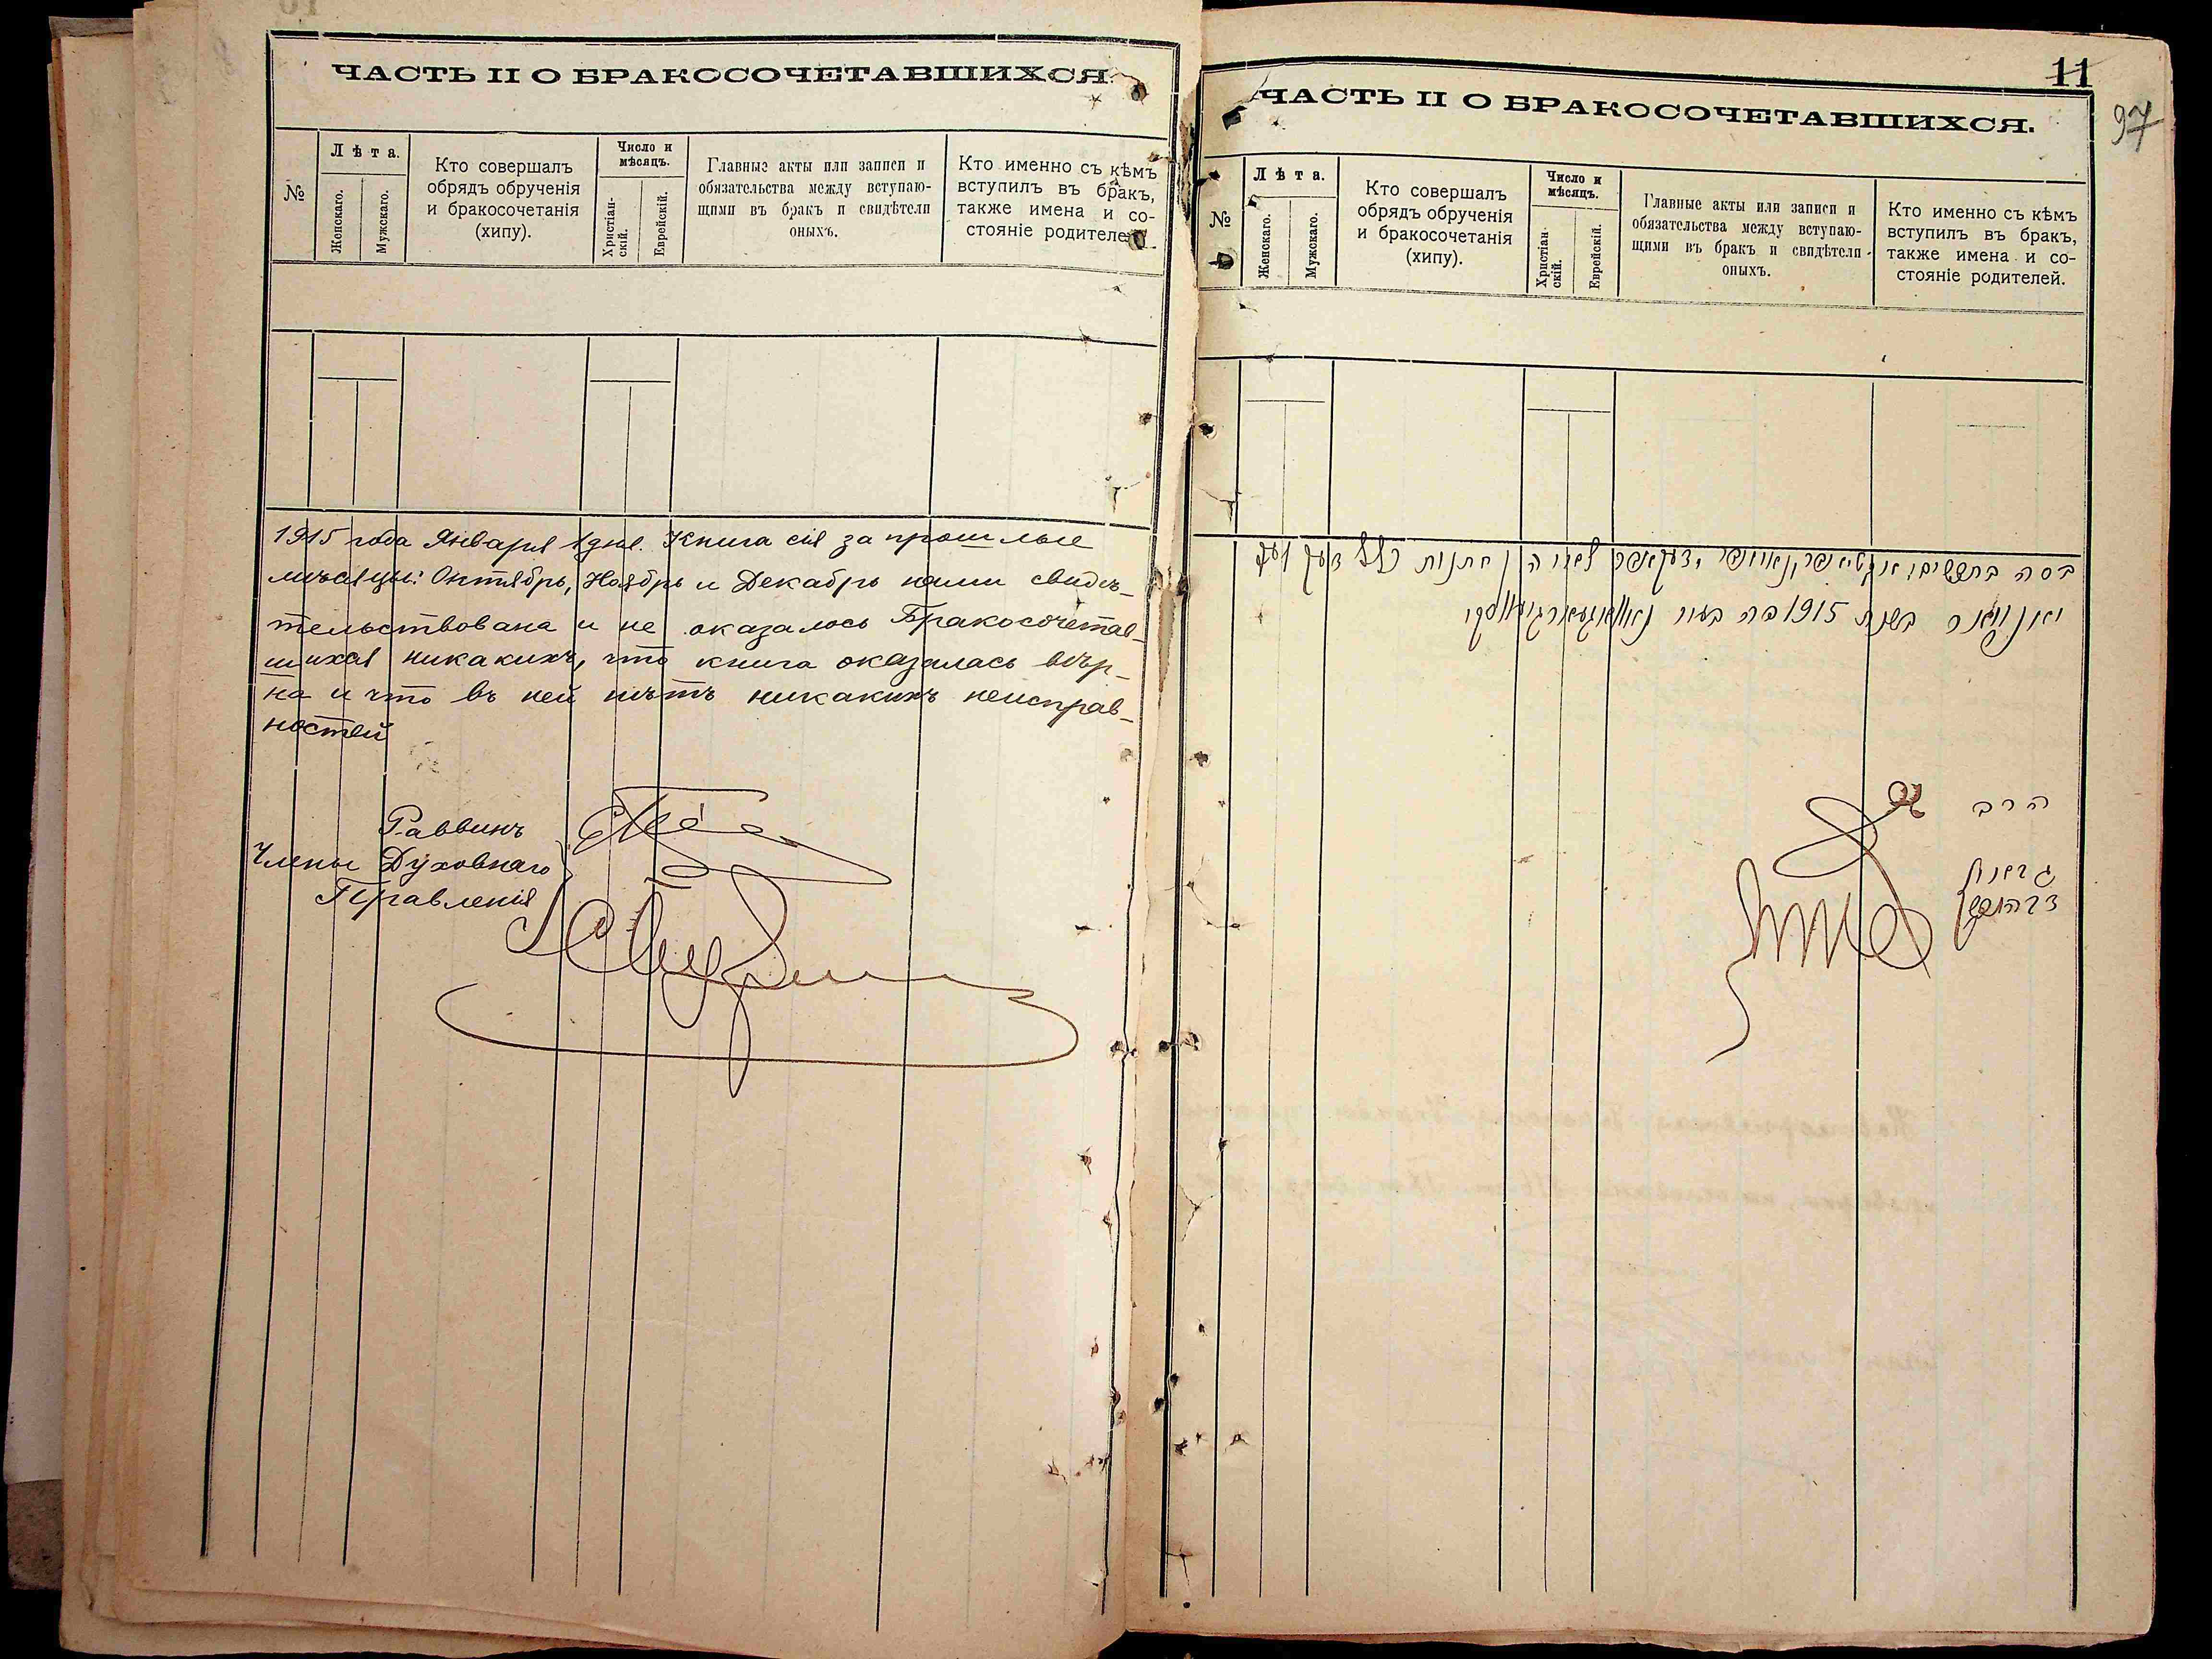 ЧАСТЬ II О БРАКОСОЧЕТАВШИХСЯ.
№
Лѣта.
Женскаго.
Мужскаго.
Кто совершалъ
обрядъ обрученія
и бракосочетанія
(хипу).
Число и
мѣсяцъ.
Христіан-
скій.
Еврейскій.
Главные акты или записи и
обязательства между вступаю-
щими въ бракъ и свидѣтели
оныхъ.
Кто именно съ кѣмъ
вступилъ въ бракъ,
также имена и со-
стояніе родителей.
1915 года Января 1 дня. Книга сія за прошлые
мѣсяцы: Октябрь, Ноябрь и Декабрь нами свидѣ-
тельствована и не оказалось Бракосочетав-
шихся никакихъ, что книга оказалась вѣр-
на и что въ ней нѣтъ никакихъ неисправ-
ностей
Раввинъ
Члены Духовнаго
Правленія
11
97
ЧАСТЬ II О БРАКОСОЧЕТАВШИХСЯ.
№
Лѣта.
Женскаго.
Мужскаго.
Кто совершалъ
обрядъ обрученія
и бракосочетанія
(хипу).
Число и
мѣсяцъ.
Христіан-
скій.
Еврейскій.
Главные акты или записи и
обязательства между вступаю-
щими въ бракъ и свидѣтели
оныхъ.
Кто именно съ кѣмъ
вступилъ въ бракъ,
также имена и со-
стояніе родителей.
חתנות כלל
יאנוואר בשנת 1915 פה
הרב